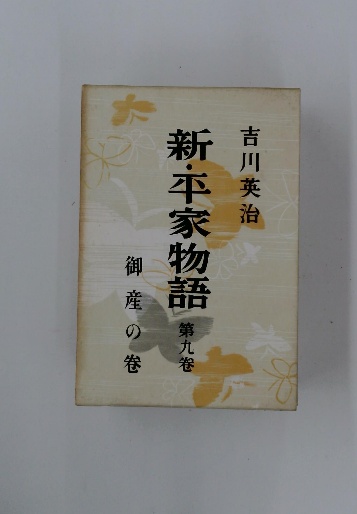 吉川英治
新・平家物語
第九巻
御産の巻